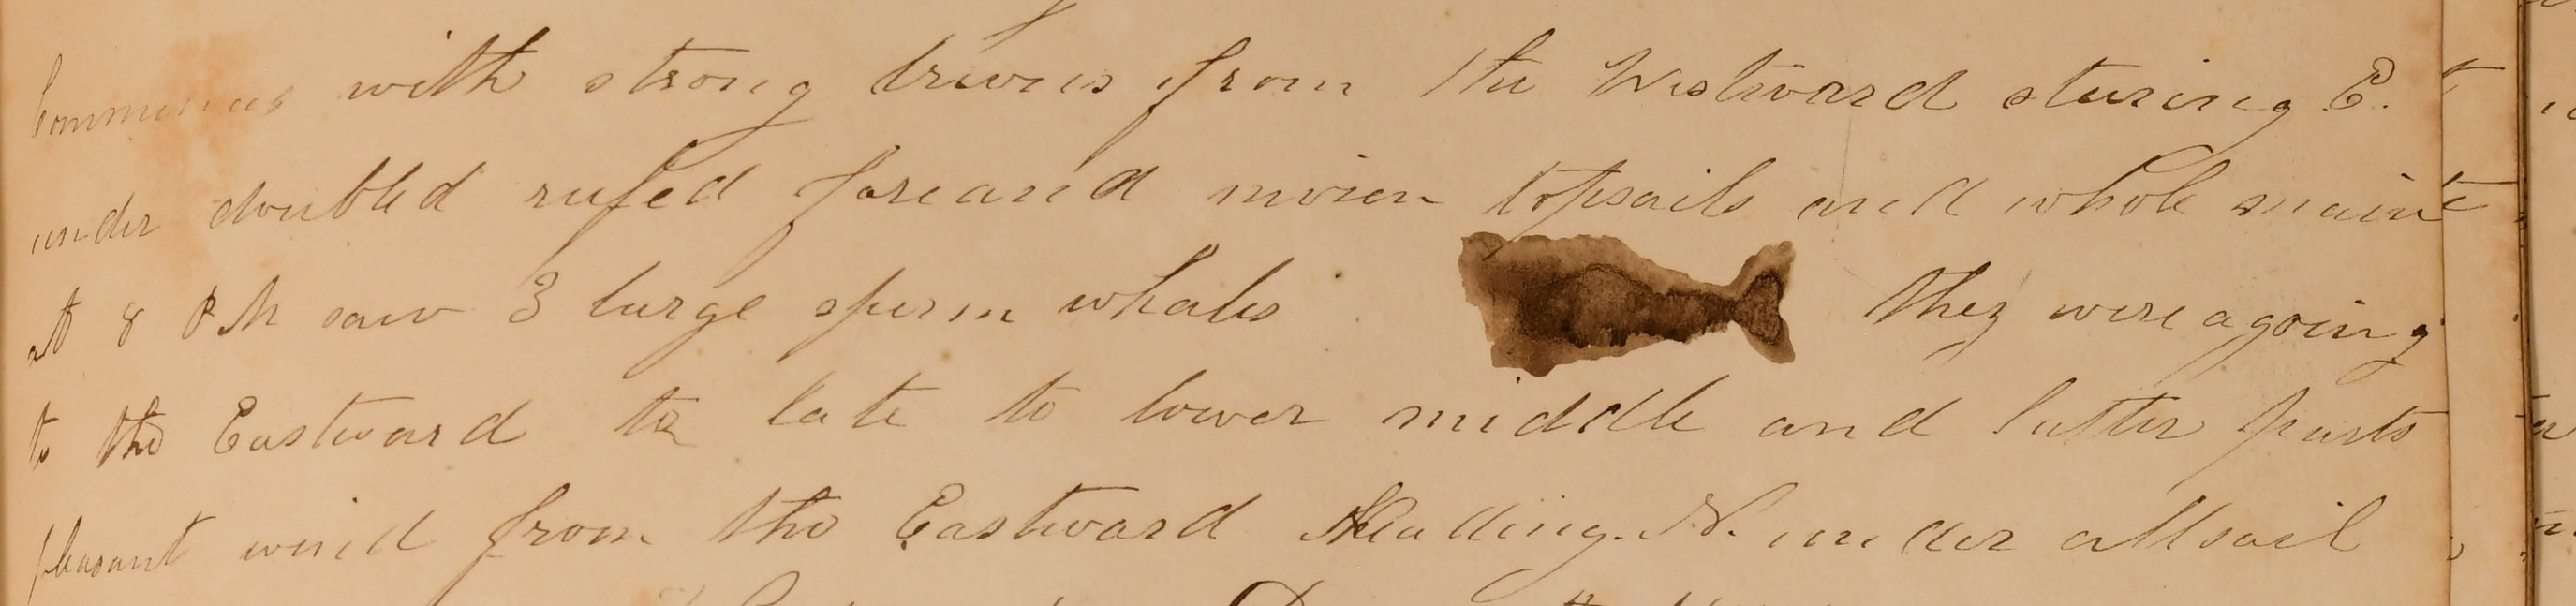 Commences with strong breezes from the Westward stering E.
under doubled refed fore and mizen topsails and whole maint
at 8 P M saw 3 large sperm whales they were a going
to the Eastward to late to lower middle and latter parts
pleasant wind from the Eastward Heading. N. under all sail